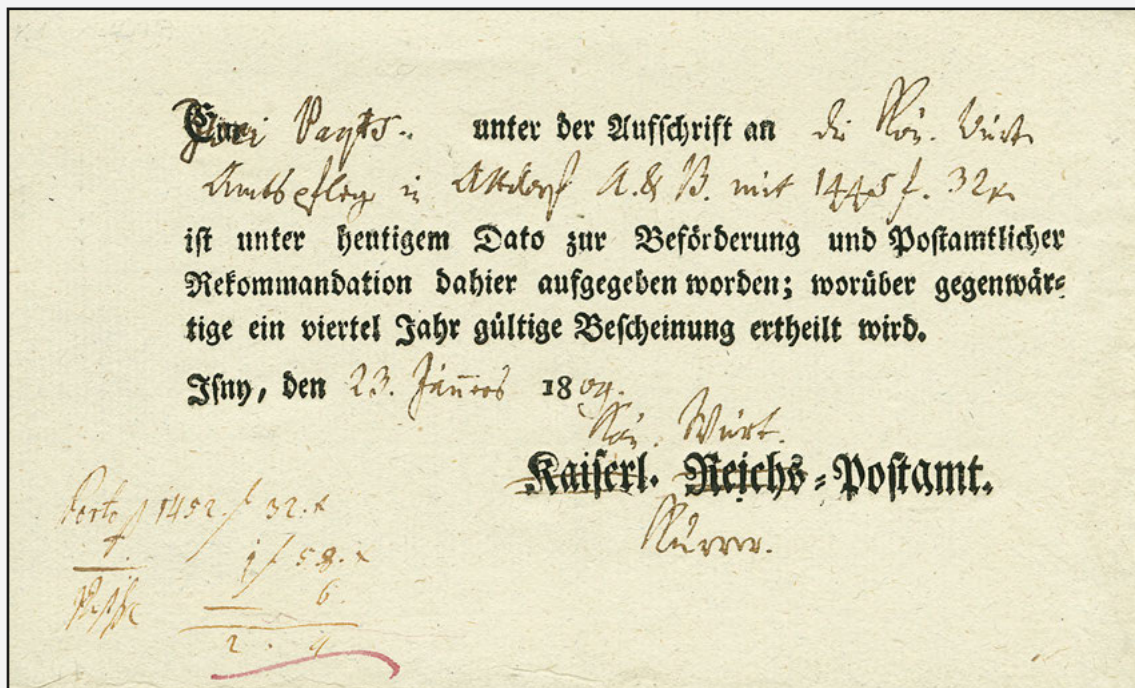 Zwei Paqts. unter der Aufschrift an die Kön. Würt.
Amtspfleg in Altdorf A. & B. mit 1445 f. 32 x
ist unter heutigem Dato zur Beförderung und Postamtlicher
Rekommandation dahier aufgegeben worden; worüber gegenwär-
tige ein viertel Jahr gültige Bescheinung ertheilt wird.
Isny, den 23. Jänners 1809.
Kön. Würt.
Kaiserl. Reichs-Postamt.
Porto 1452 f 32. x
1 f 58. x
6.
2. 4